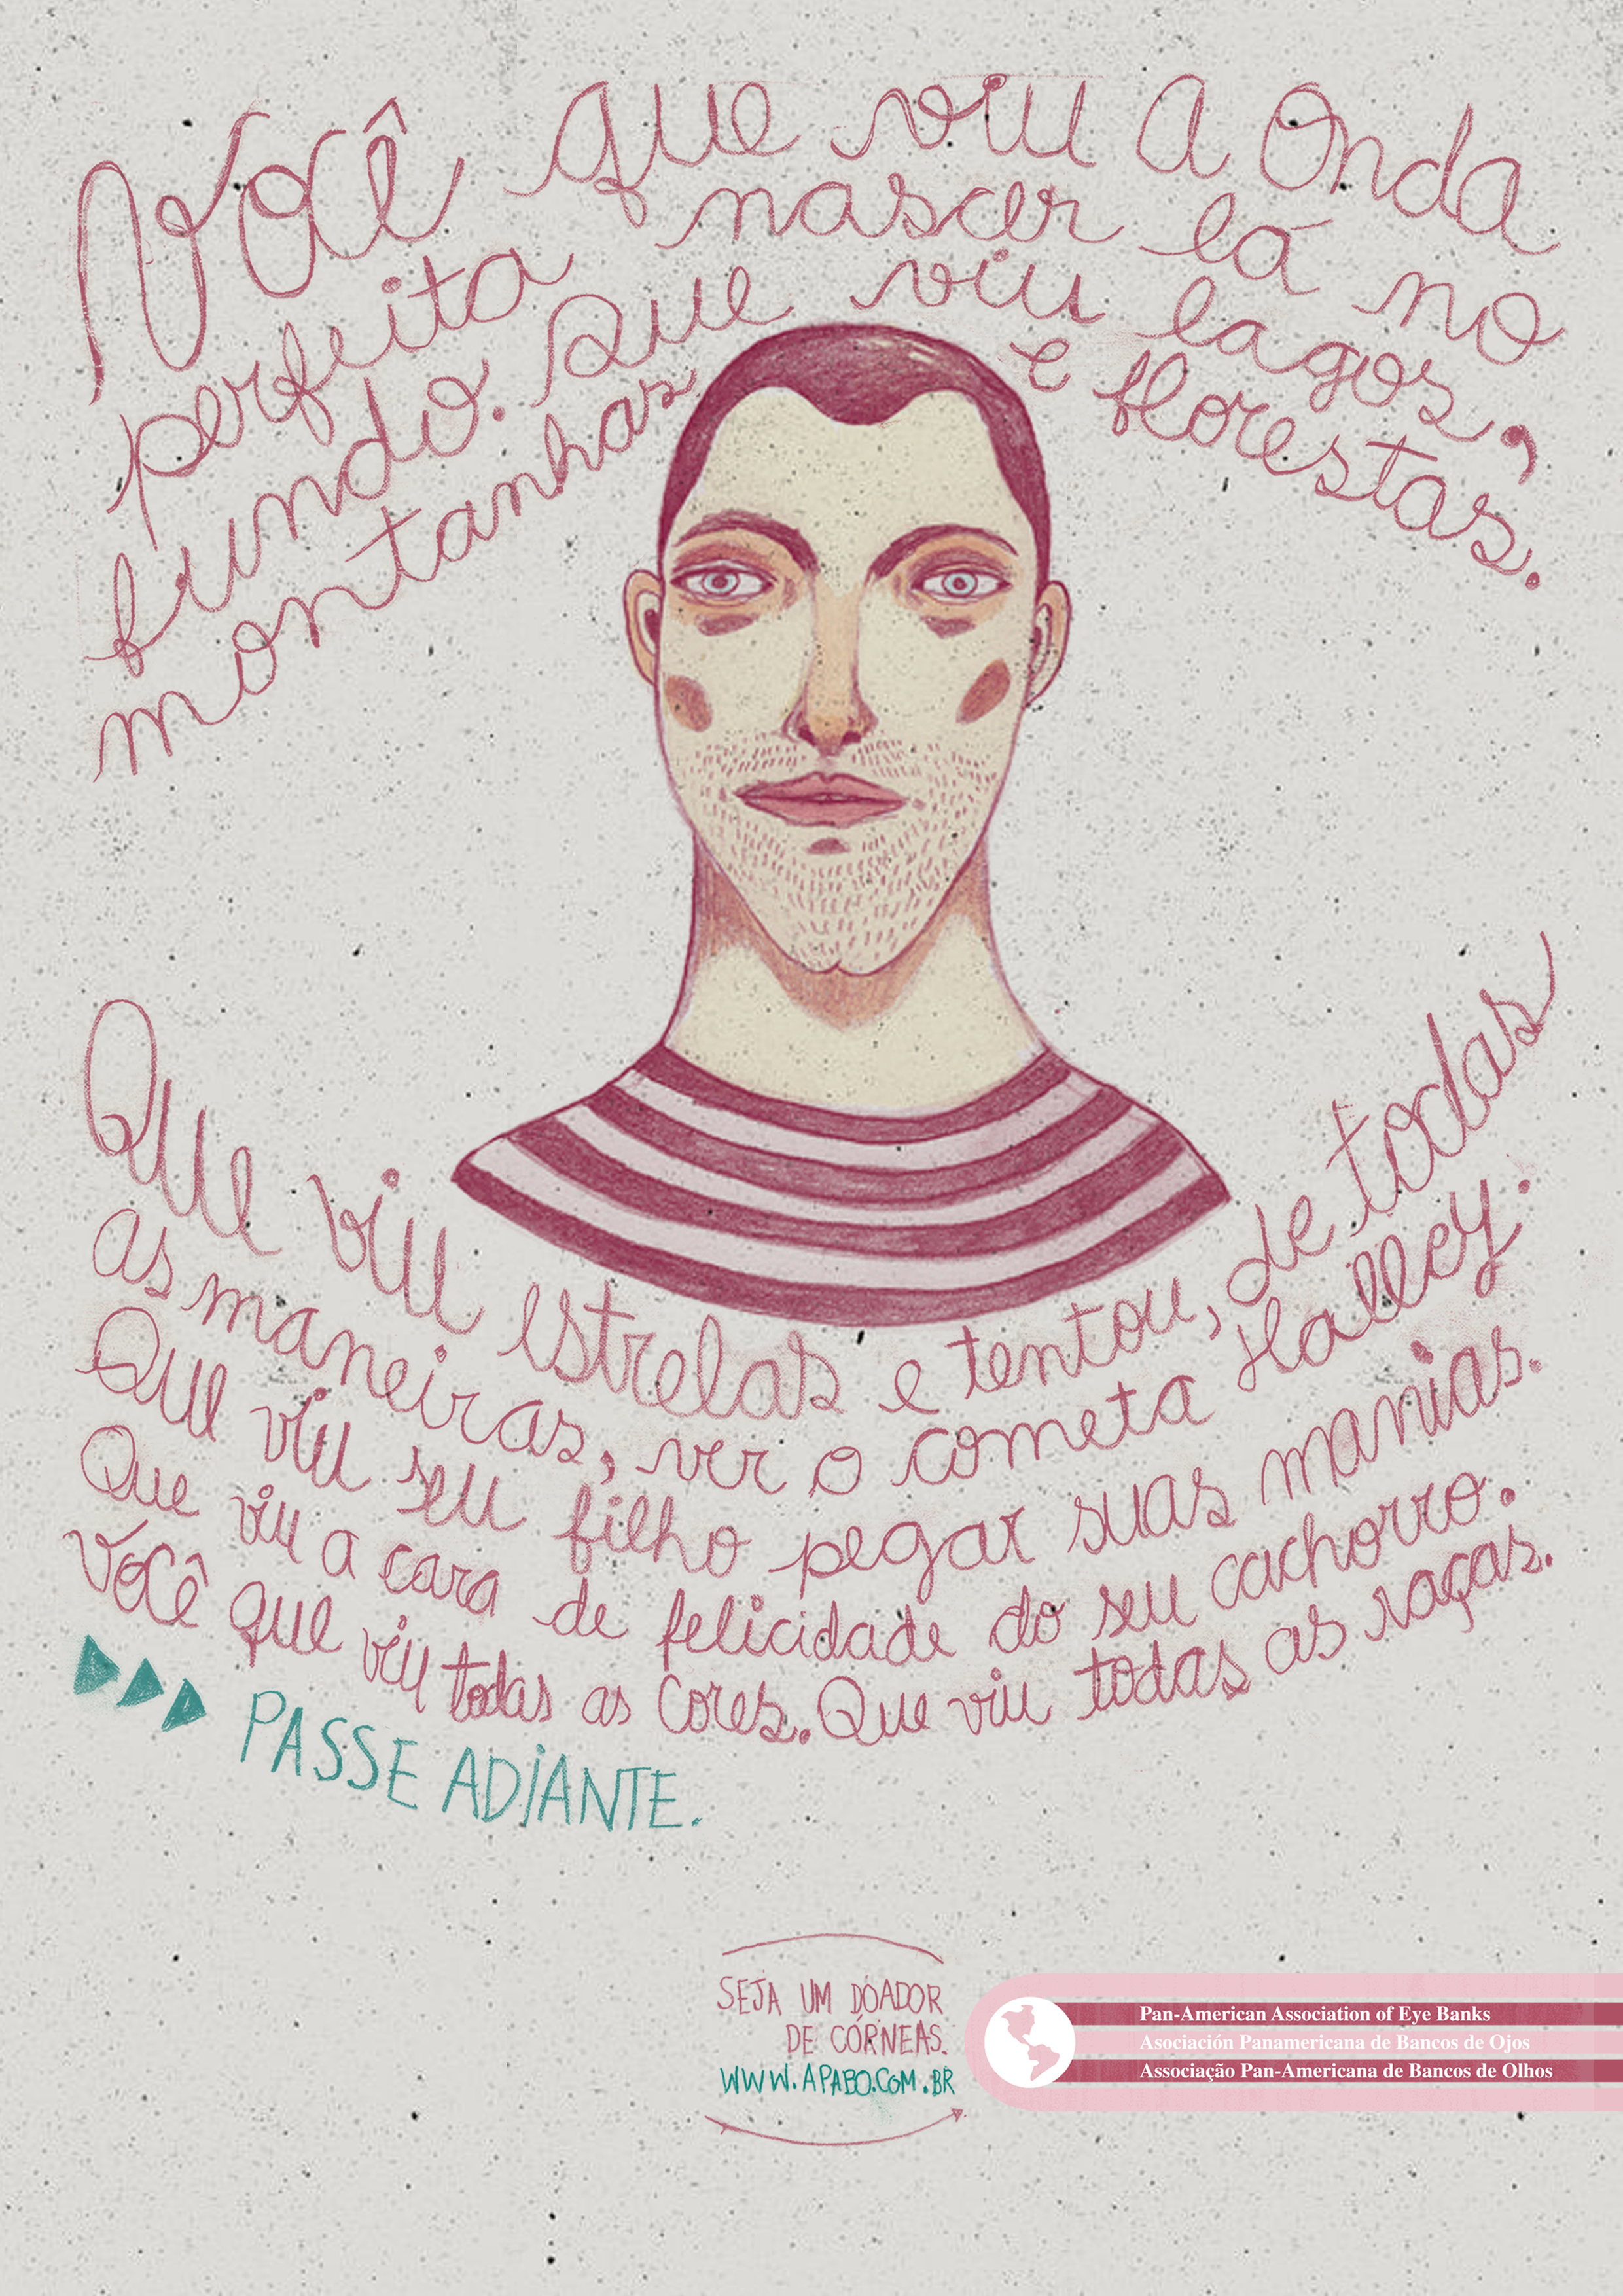 Você que viu a Onda
perfeita nascer lá no
fundo. Que viu lagos,
montanhas e florestas.
Que viu estrelas e tentou, de todas
as maneiras, ver o cometa Halley.
Que viu seu filho pegar suas manias.
Que viu a cara de felicidade do seu cachorro.
Você que viu todas as cores. Que viu todas as raças.
PASSE ADIANTE.
SEJA UM DOADOR
DE CÓRNEAS.
WWW.APABO.COM.BR
Pan-American Association of Eye Banks
Asociación Panamericana de Bancos de Ojos
Associação Pan-Americana de Bancos de Olhos